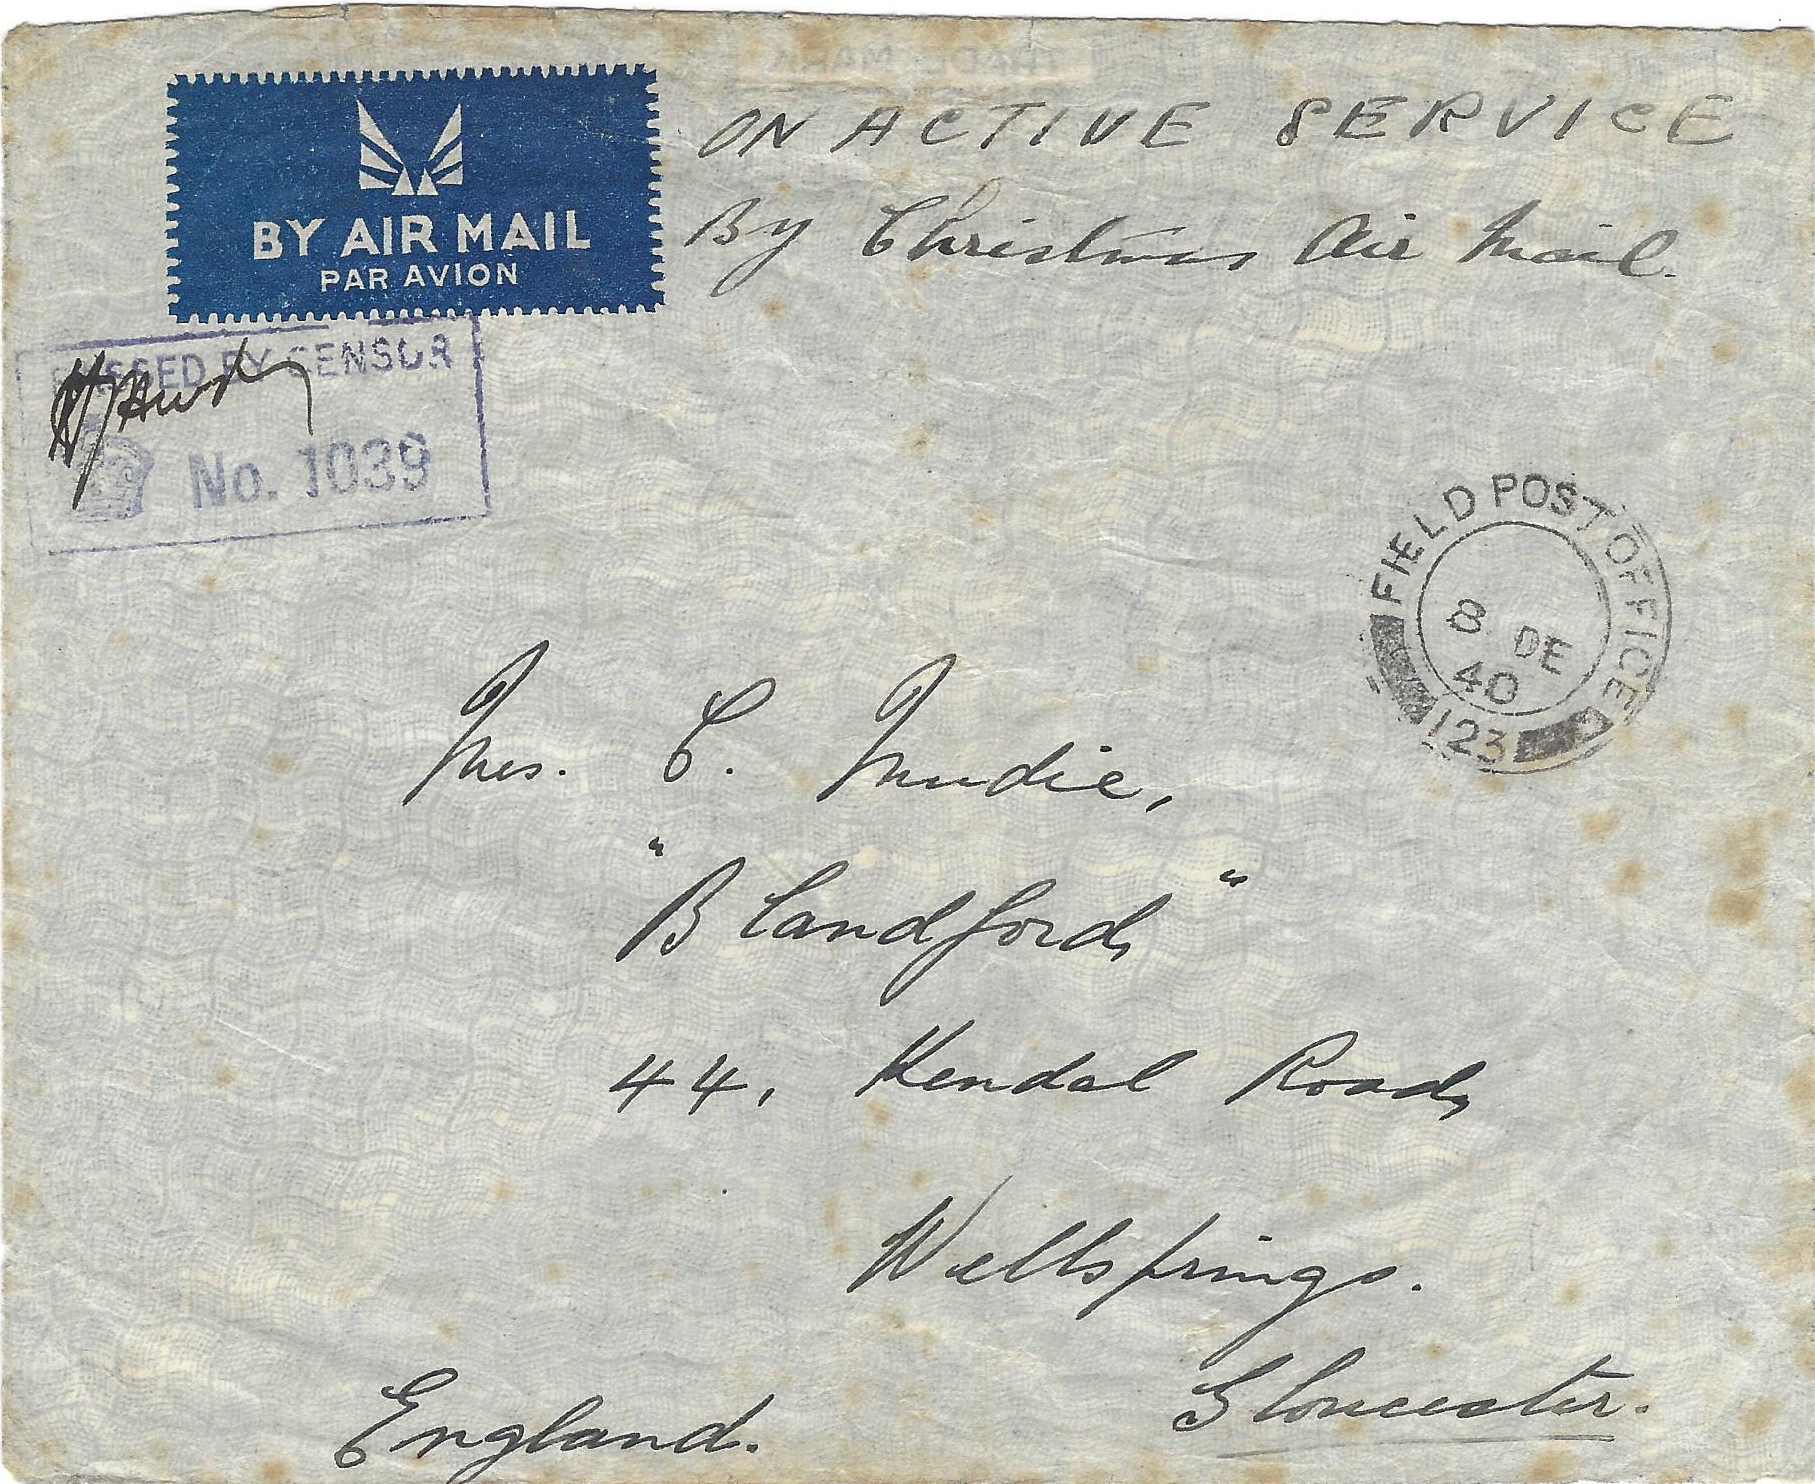 ON ACTIVE SERVICE
By Christmas Air Mail.
BY AIR MAIL
PAR AVION
PASSED BY CENSOR
No. 1039
FIELD POST OFFICE
8 DE
40
123
Mrs. C. Mudie,
"Blandford,"
44, Kendal Road,
Wellsprings.
Gloucester.
England.